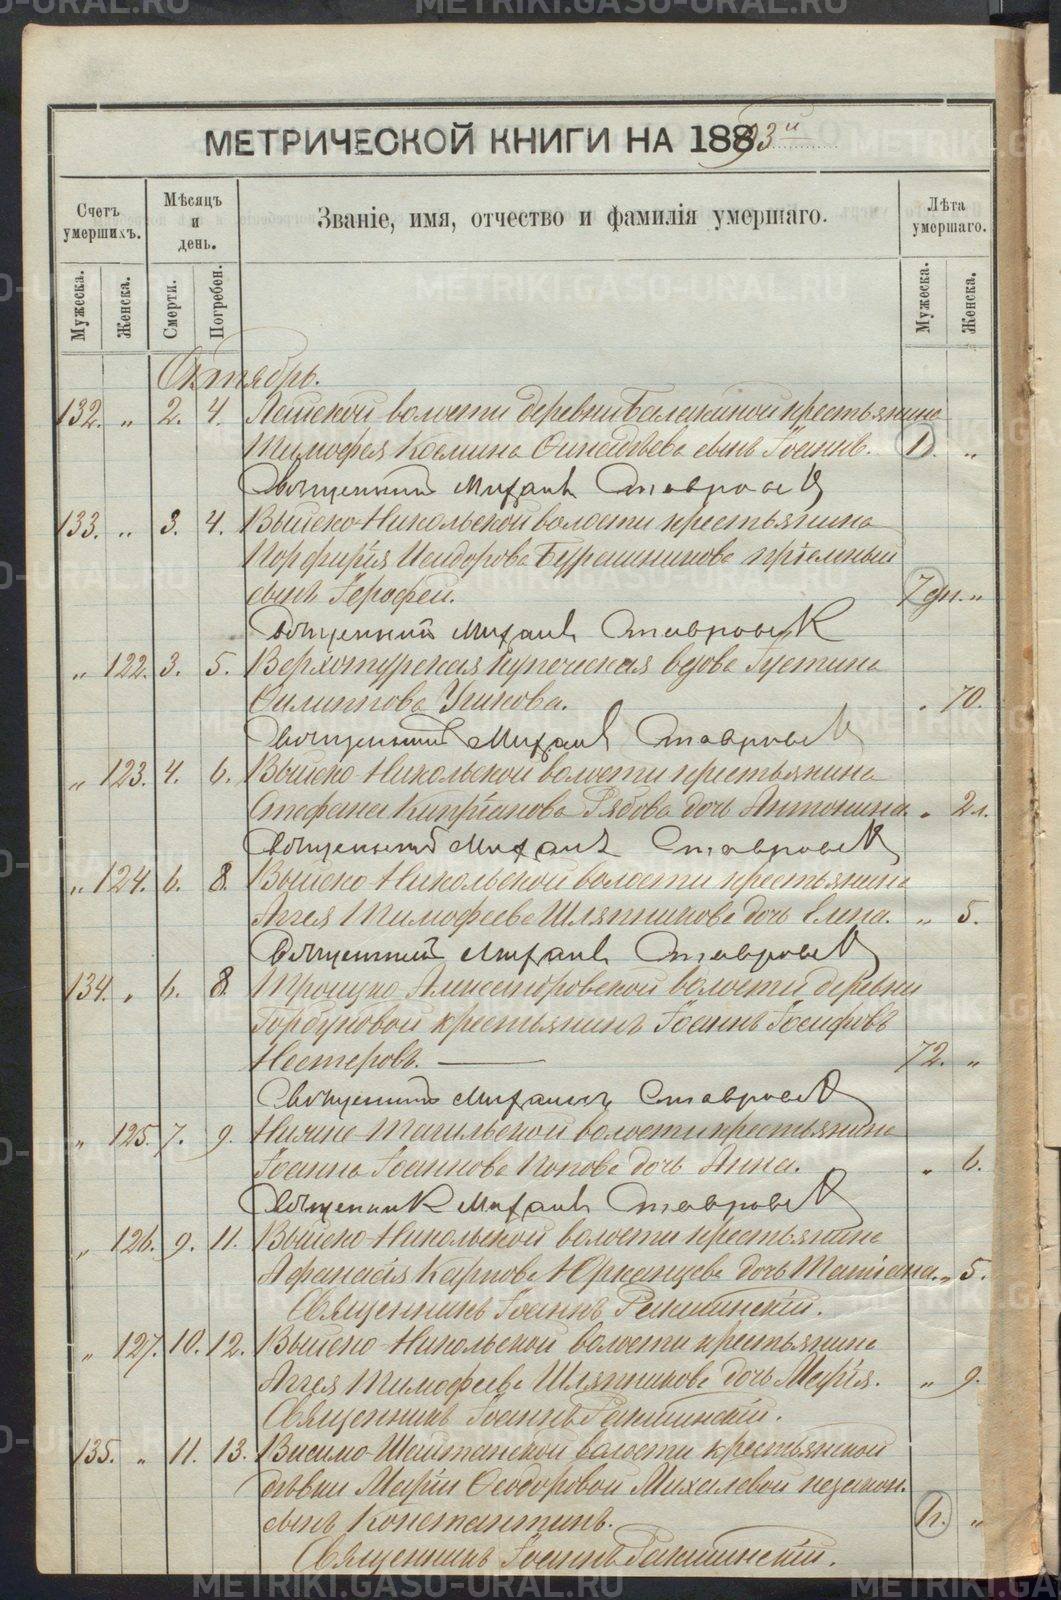 МЕТРИЧЕСКОЙ КНИГИ НА 1893й
Счетъ умершихъ.
Мѣсяцъ и день.
Званіе, имя, отчество и фамилія умершаго.
Лѣта умершаго.
Мужеска.
Женска.
Смерти.
Погребен.
Мужеска.
Женска.
Октябрь.
132. " 2. 4. Лайской волости деревни Балакиной крестьянина
Тимофея Космина сынъ Іоаннъ. 1. "
Священникъ Михаилъ Ставровскій
133. " 3. 4. Выйско-Никольской волости крестьянина
Порфирія Исидорова пріемный
сынъ Іерофей. 7 дн. "
Священникъ Михаилъ Ставровскій
" 122. 3. 5. Верхотурская купеческая вдова Іустина
Филиппова Ушкова. " 70.
Священникъ Михаилъ Ставровскій
" 123. 4. 6. Выйско-Никольской волости крестьянина
Стефана Кипріанова Рябова дочь Антонина. " 2 л.
Священникъ Михаилъ Ставровскій
" 124. 6. 8. Выйско-Никольской волости крестьянина
Аггея Тимофеева Шляпникова дочь Елена. " 5.
Священникъ Михаилъ Ставровскій
134. " 6. 8. Троицко-Александровской волости деревни
Горбуновой крестьянинъ Іоаннъ Іосифовъ
Нестеровъ. 72. "
Священникъ Михаилъ Ставровскій
" 125. 7. 9. Нижне-Тагильской волости крестьянина
Іоанна Іоаннова Попова дочь Анна. " 6.
Священникъ Михаилъ Ставровскій
" 126. 9. 11. Выйско-Никольской волости крестьянина
Афанасія Карпова Юрканцева дочь Татіана. " 5.
Священникъ Іоаннъ
" 127. 10. 12. Выйско-Никольской волости крестьянина
Аггея Тимофеева Шляпникова дочь Марія. " 9.
Священникъ Іоаннъ
135. " 11. 13. Висимо-Шайтанской волости крестьянской
дѣвки Маріи Ѳеодоровой Михалевой незакон.
сынъ Константинъ. "
Священникъ Іоаннъ
METRIKI.GASO-URAL.RU